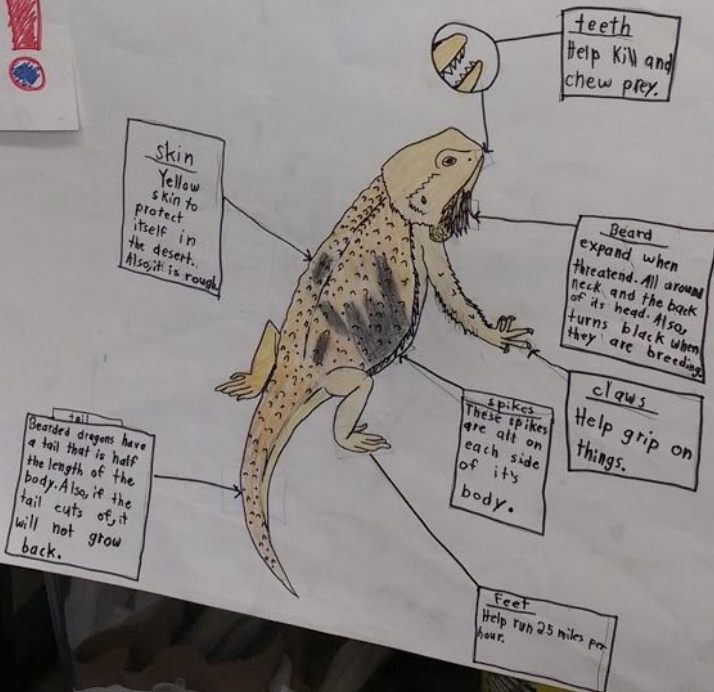 teeth
Help Kill and
chew prey.
skin
Yellow
skin to
protect
itself in
the desert.
Also, it is rough.
Beard
expand when
threatend. All around
neck and the back
of its head. Also,
turns black when
they are breeding.
claws
Help grip on
things.
spikes
These spikes
are all on
each side
of it's
body.
tail
Bearded dragons have
a tail that is half
the length of the
body. Also, if the
tail cuts of, it
will not grow
back.
Feet
Help run 25 miles per
hour.